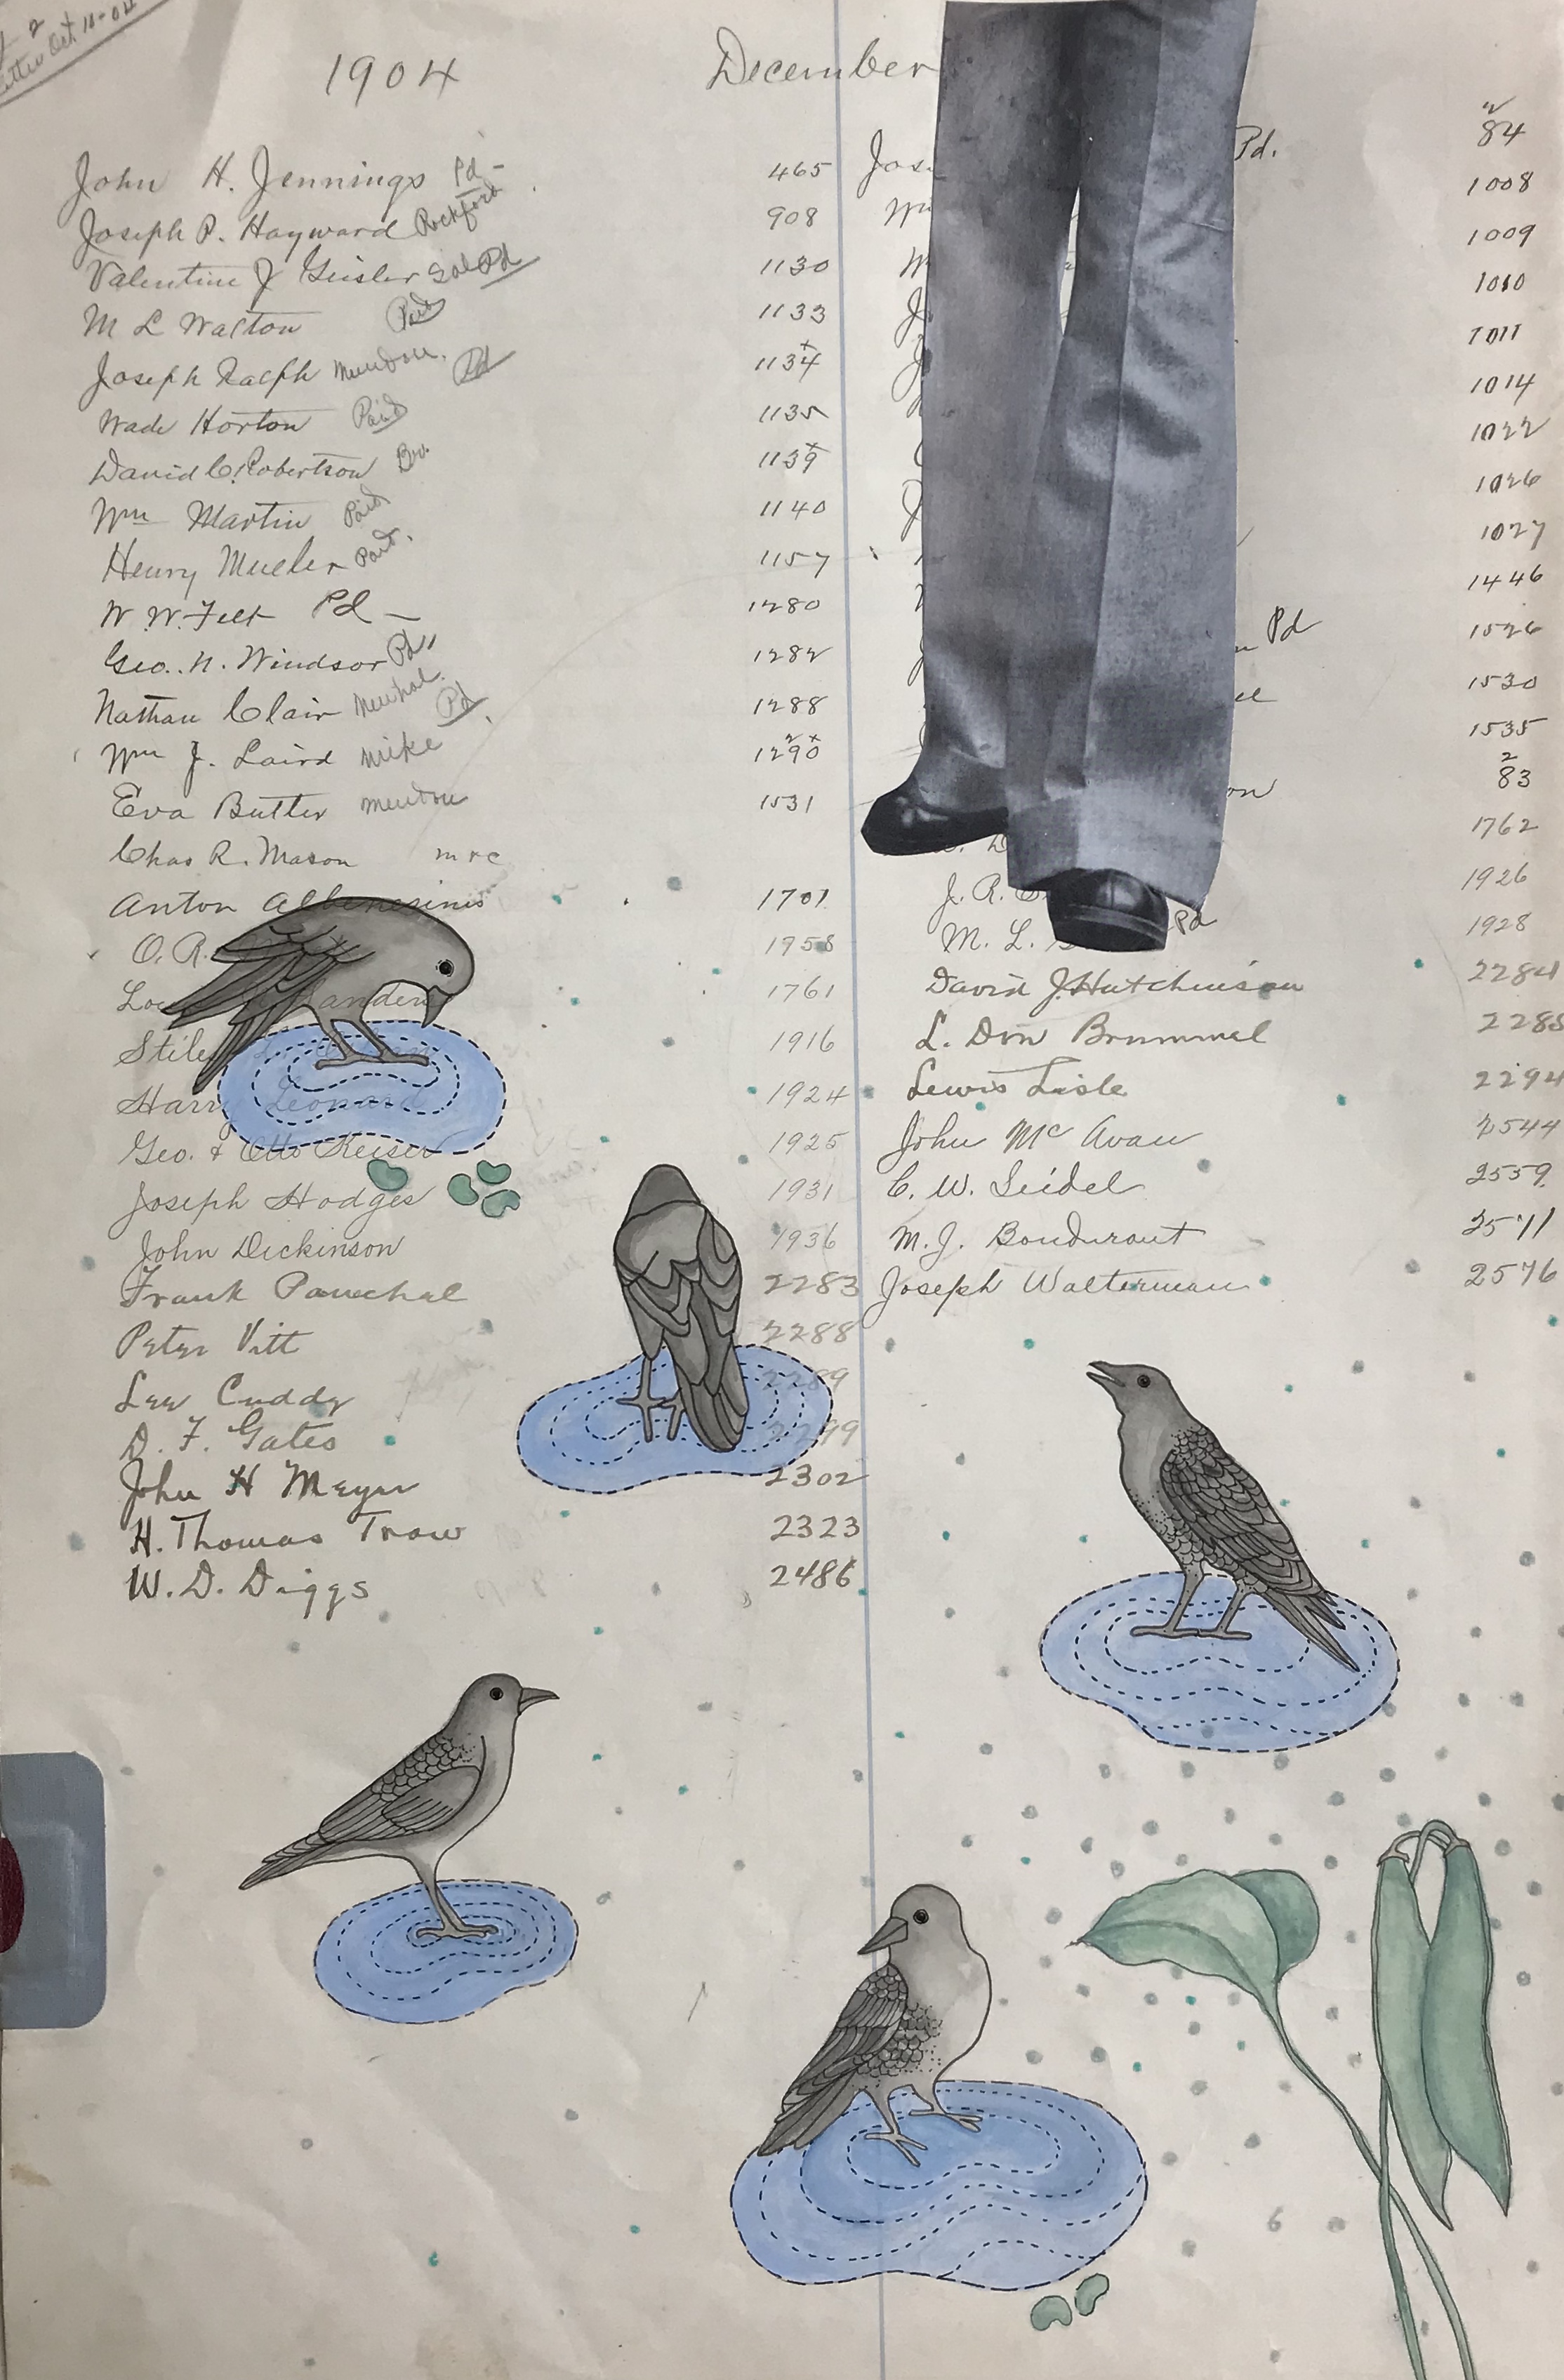 Oct. 11-04
1904 December
John H. Jennings Pd - 465
Joseph P. Hayward Rockford 908
Valentine J Geisler Pd 1130
M L Walton Paid 1133
Joseph Ralph Mendon. Pd 1134
Wade Horton Paid 1135
David C. Robertson 1139
Wm Martin Paid 1140
Henry Mueller Paid. 1157
W. W. Felt Pd - 1280
Geo. N. Windsor Pd" 1282
Nathan Clair Pd. 1288
Wm J. Laird Mike 1290
Eva Butter Mendon 1531
Chas R. Mason
Anton 1701
O. R. 1958
1761
1916
Harry Leonard 1924
Geo. & Otto Keiser 1925
Joseph Hodges 1931
John Dickinson 1936
Frank 2283
Peter Vitt 2288
Lew Cuddy 2289
D. F. Gates 2299
John H Meyer 2302
H. Thomas Traw 2323
W. D. Diggs 2486
Pd. 84
1008
1009
1010
1011
1014
1022
1026
1027
1446
Pd 1526
1530
1535
83
1762
J. R. 1926
M. L. Pd 1928
David J. Hutchinson 2284
L. Don Brummel 2285
Lewis Lisle 2294
John Mc Avan 2544
C. W. Seidel 2559
M. J. Bondurant 2571
Joseph Walterman 2576